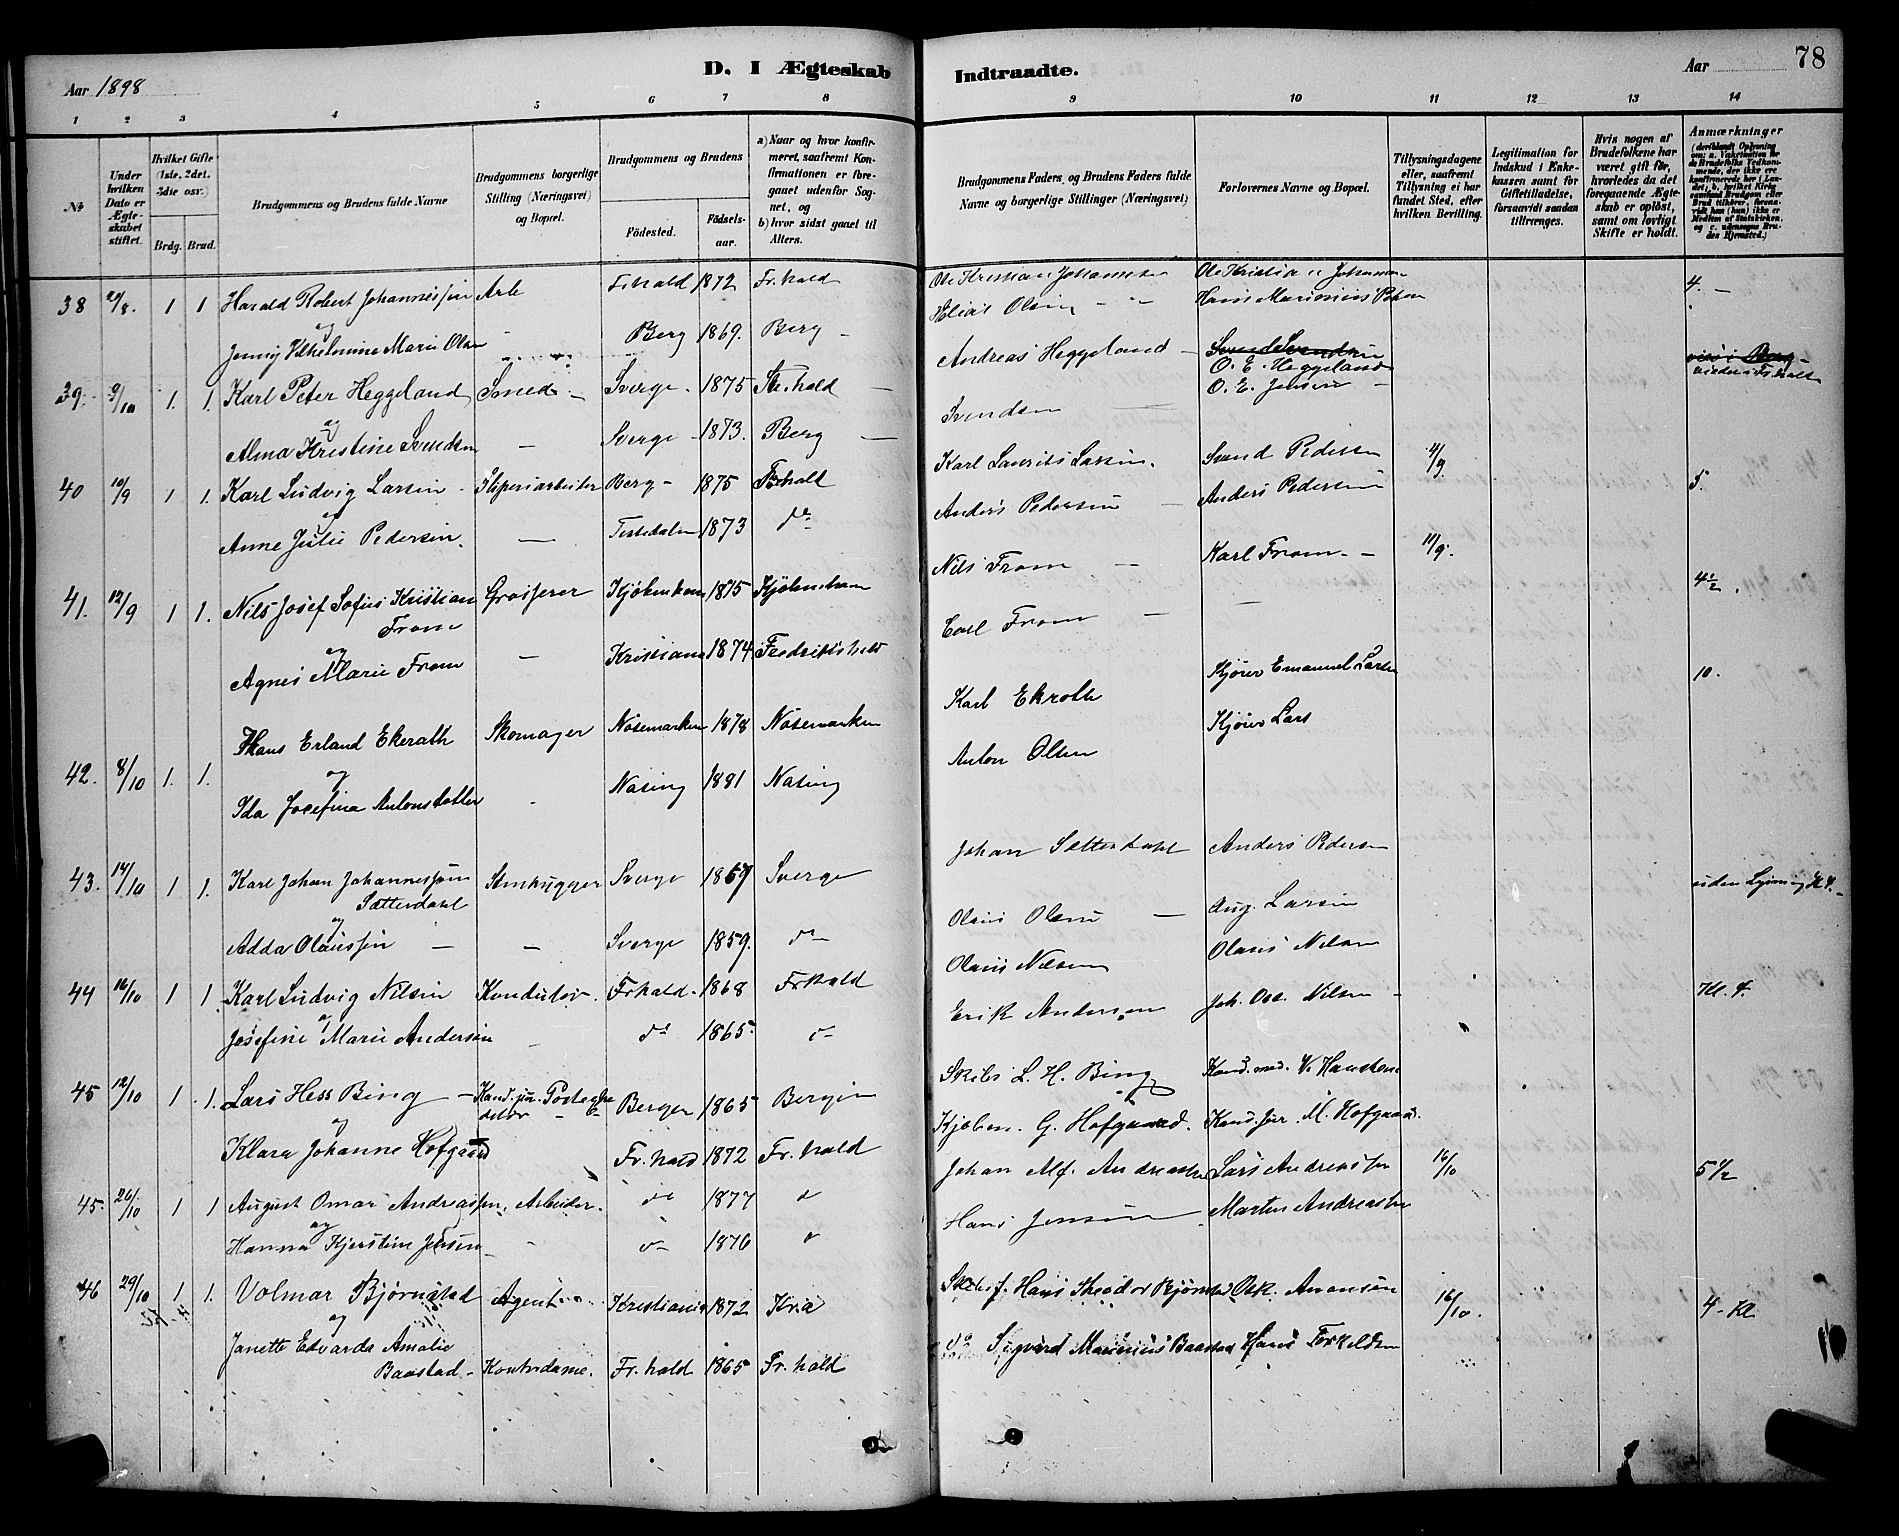 Aar 1898
D. I Ægteskab
Indtraadte.
Aar
78
1 2 3 4 5 6 7 8 9 10 11 12 13 14
№
Under hvilken Dato er Ægteskabet stiftet.
Hvilket Gifte (1ste, 2det, 3die osv.)
Brdg. Brud.
Brudgommens og Brudens fulde Navne
Brudgommens borgerlige Stilling (Næringsvei) og Bopæl.
Brudgommens og Brudens
Födested.
Födselsaar.
a) Naar og hvor konfirmeret, saafremt Konfirmationen er foregaaet udenfor Sognet, og
b) hvor sidst gaaet til Alters.
Brudgommens Faders, og Brudens Faders fulde Navne og borgerlige Stillinger (Næringsvei)
Forlovernes Navne og Bopæl.
Tillysningsdagene eller, saafremt Tillysning ei har fundet Sted, efter hvilken Bevilling.
Legitimation for Indskud i Enkekassen samt for Giftetilladelse, forsaavidt saadan tiltrænges.
Hvis nogen af Brudefolkene har været gift för, hvorledes da det foregaaende Ægteskab er oplöst, samt om lovligt Skifte er holdt.
Anmærkninger
38 29/8. 1 1 Harald Robert Johannessen Arb Fr.hald 1872 Fr.hald Ole Kristian Johannesen Ole Kristian Johannesen 4. -
og Elias Olsen Hans Marinius Petersen
Jenny Vilhelmine Marie Olsen Berg 1869. Berg
39. 9/10 1. 1. Karl Peter Heggeland Smed Sverge 1875 Fr.hald Andreas Heggeland Svend Svendsen O. E. Heggeland viet i Berg
og O. E. Jensen
Alma Kristine Svendsen Sverge 1873. Berg Svendsen
40 10/9 1 1. Karl Ludvig Larsen Sliperiarbeiter Berg 1875 Fr.hald Karl Laurits Larsen. Svend Pedersen 4/9 5.
og
Anne Julie Pedersen. Tistedalen 1873 do Anders Pedersen Anders Pedersen
41. 12/9 1 1. Nils Josef Sofus Kristian From Grosserer Kjøbenhavn 1875 Kjøbenhavn Nils From Karl From 11/9. 4½.
og
Agnes Marie From Kristiania 1874 Fredrikshald Carl From
42. 8/10 1. 1. Hans Erland Ekerath Skomager Nösemarken 1878 Nösemarken Karl Ekroth Kjører Emanuel Larsen 10.
og
Ida Josefina Antonsdatter Nasing 1881 Nasing Anton Olsen Kjører Lars
43. 14/10 1 1. Karl Johan Johannessen Sætterdahl Stenhugger Sverge 1867 Sverge Johan Sætterdahl Anders Pedersen uden Lysning Kl 4.
og
Adda Olaussen Sverge 1859. do Olaus Olsen Aug. Larsen
44 16/10 1 1 Karl Ludvig Nilsen Konduktør. Frhald 1868 Frhald Olaus Nilsen Olaus Nilsen Kl. 4.
og
Josefine Marie Andersen do 1865 do Erik Andersen Joh. Osc. Nilsen
45 12/10 1 1. Lars Hess Bing Kand. jur. Bergen 1865 Bergen Skibs L. H. Bing Kand. med. V. Hansteen
og
Klara Johanne Hofgaard Fr.hald 1872 Fr.hald Kjøbm. G. Hofgaard. Kand. jur. M. Hofgaard.
45. 26/10 1 1 August Omar Andreassen, Arbeider. do 1877 do Johan Alf. Andreassen Lars Andreassen 16/10 5½
og
Hanna Kjerstine Jensen do 1876 do Hans Jensen Martin Andreassen
46 29/10 1 1. Volmar Bjørnstad Agent Kristiania 1872 Kria Skibsf. Hans Theodor Bjørnstad Osk. Aronsen 16/10. 4 - Kl
og
Janette Edvarda Amalie Baastad Kontordame. Fr.hald 1865 Fr.hald do Sigvard Marinius Baastad Hans Torkildsen